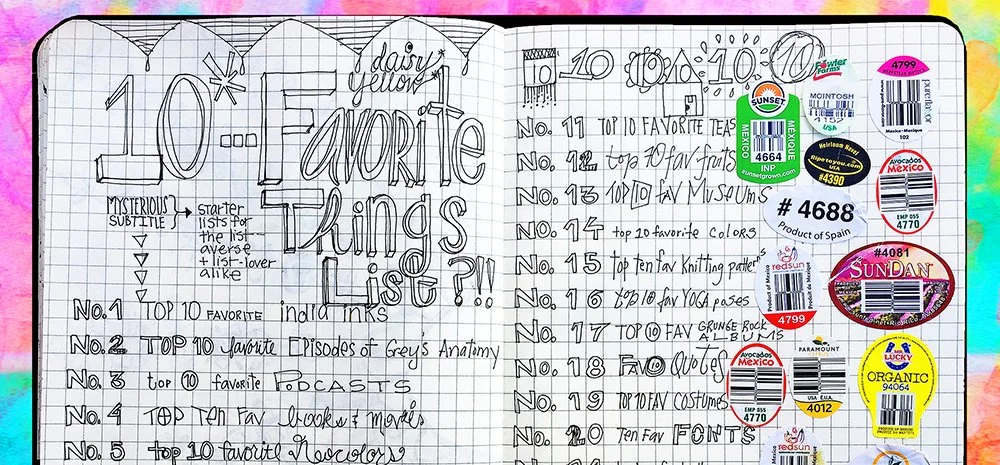 daisy
yellow*
10*...Favorite
Things
List?!!
MYSTERIOUS
SUBTITLE
starter
lists for
the list
averse
+ list-lover
alike
No. 1 TOP 10 FAVORITE india inks
No. 2 TOP 10 favorite Episodes of Grey's Anatomy
No. 3 top 10 favorite PODCASTS
No. 4 TOP Ten Fav books & movies
No. 5 top 10 favorite Neocolors
10 10 10 10
No. 11 TOP 10 FAVORITE TEAS
No. 12 top 10 fav fruits
No. 13 TOP 10 FAV MUSEUMS
No. 14 top 10 favorite colors
No. 15 top ten fav knitting patterns
No. 16 top 10 fav YOGA poses
No. 17 TOP 10 FAV GRUNGE ROCK
ALBUMS
No. 18 FAV 10 Quotes
No. 19 TOP 10 FAV COSTUMES
No. 20 Ten Fav FONTS
Fowler
Farms
MCINTOSH
4152
USA
4799
Mexico-Mexique
102
SUNSET
MEXICO
MEXIQUE
4664
INP
sunsetgrown.com
Heirloom Navel
Ripetoyou.com
USA
#4390
Avocados
Mexico
EMP 055
4770
# 4688
Product of Spain
redsun
Product of Mexico
4799
#4081
SUNDAN
Avocados
Mexico
EMP 055
4770
PARAMOUNT
CITRUS
USA E.U.A.
4012
LUCKY
ORGANIC
94064
redsun